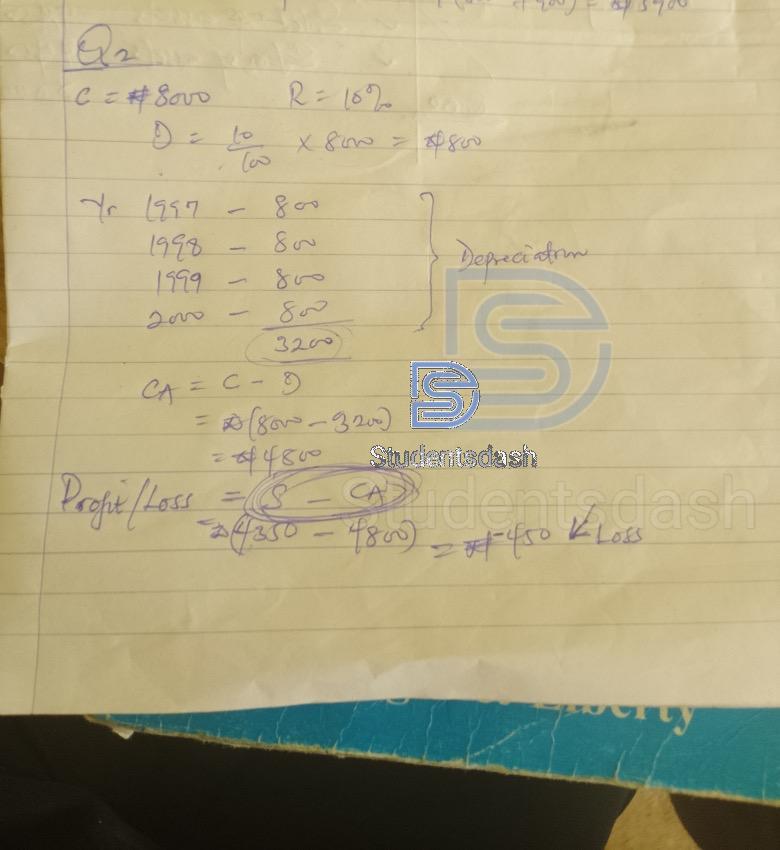 = ₦3900
Q2
C = ₦8000 R = 10%
D = 10/100 × 8000 = ₦800
Yr 1997 - 800
1998 - 800
1999 - 800
2000 - 800
3200
Depreciation
CA = C - D
= ₦(8000 - 3200)
= ₦4800
Studentsdash
Profit/Loss = S - CA
Studentsdash
= ₦(4350 - 4800) = ₦-450 ↙ Loss
Liberty